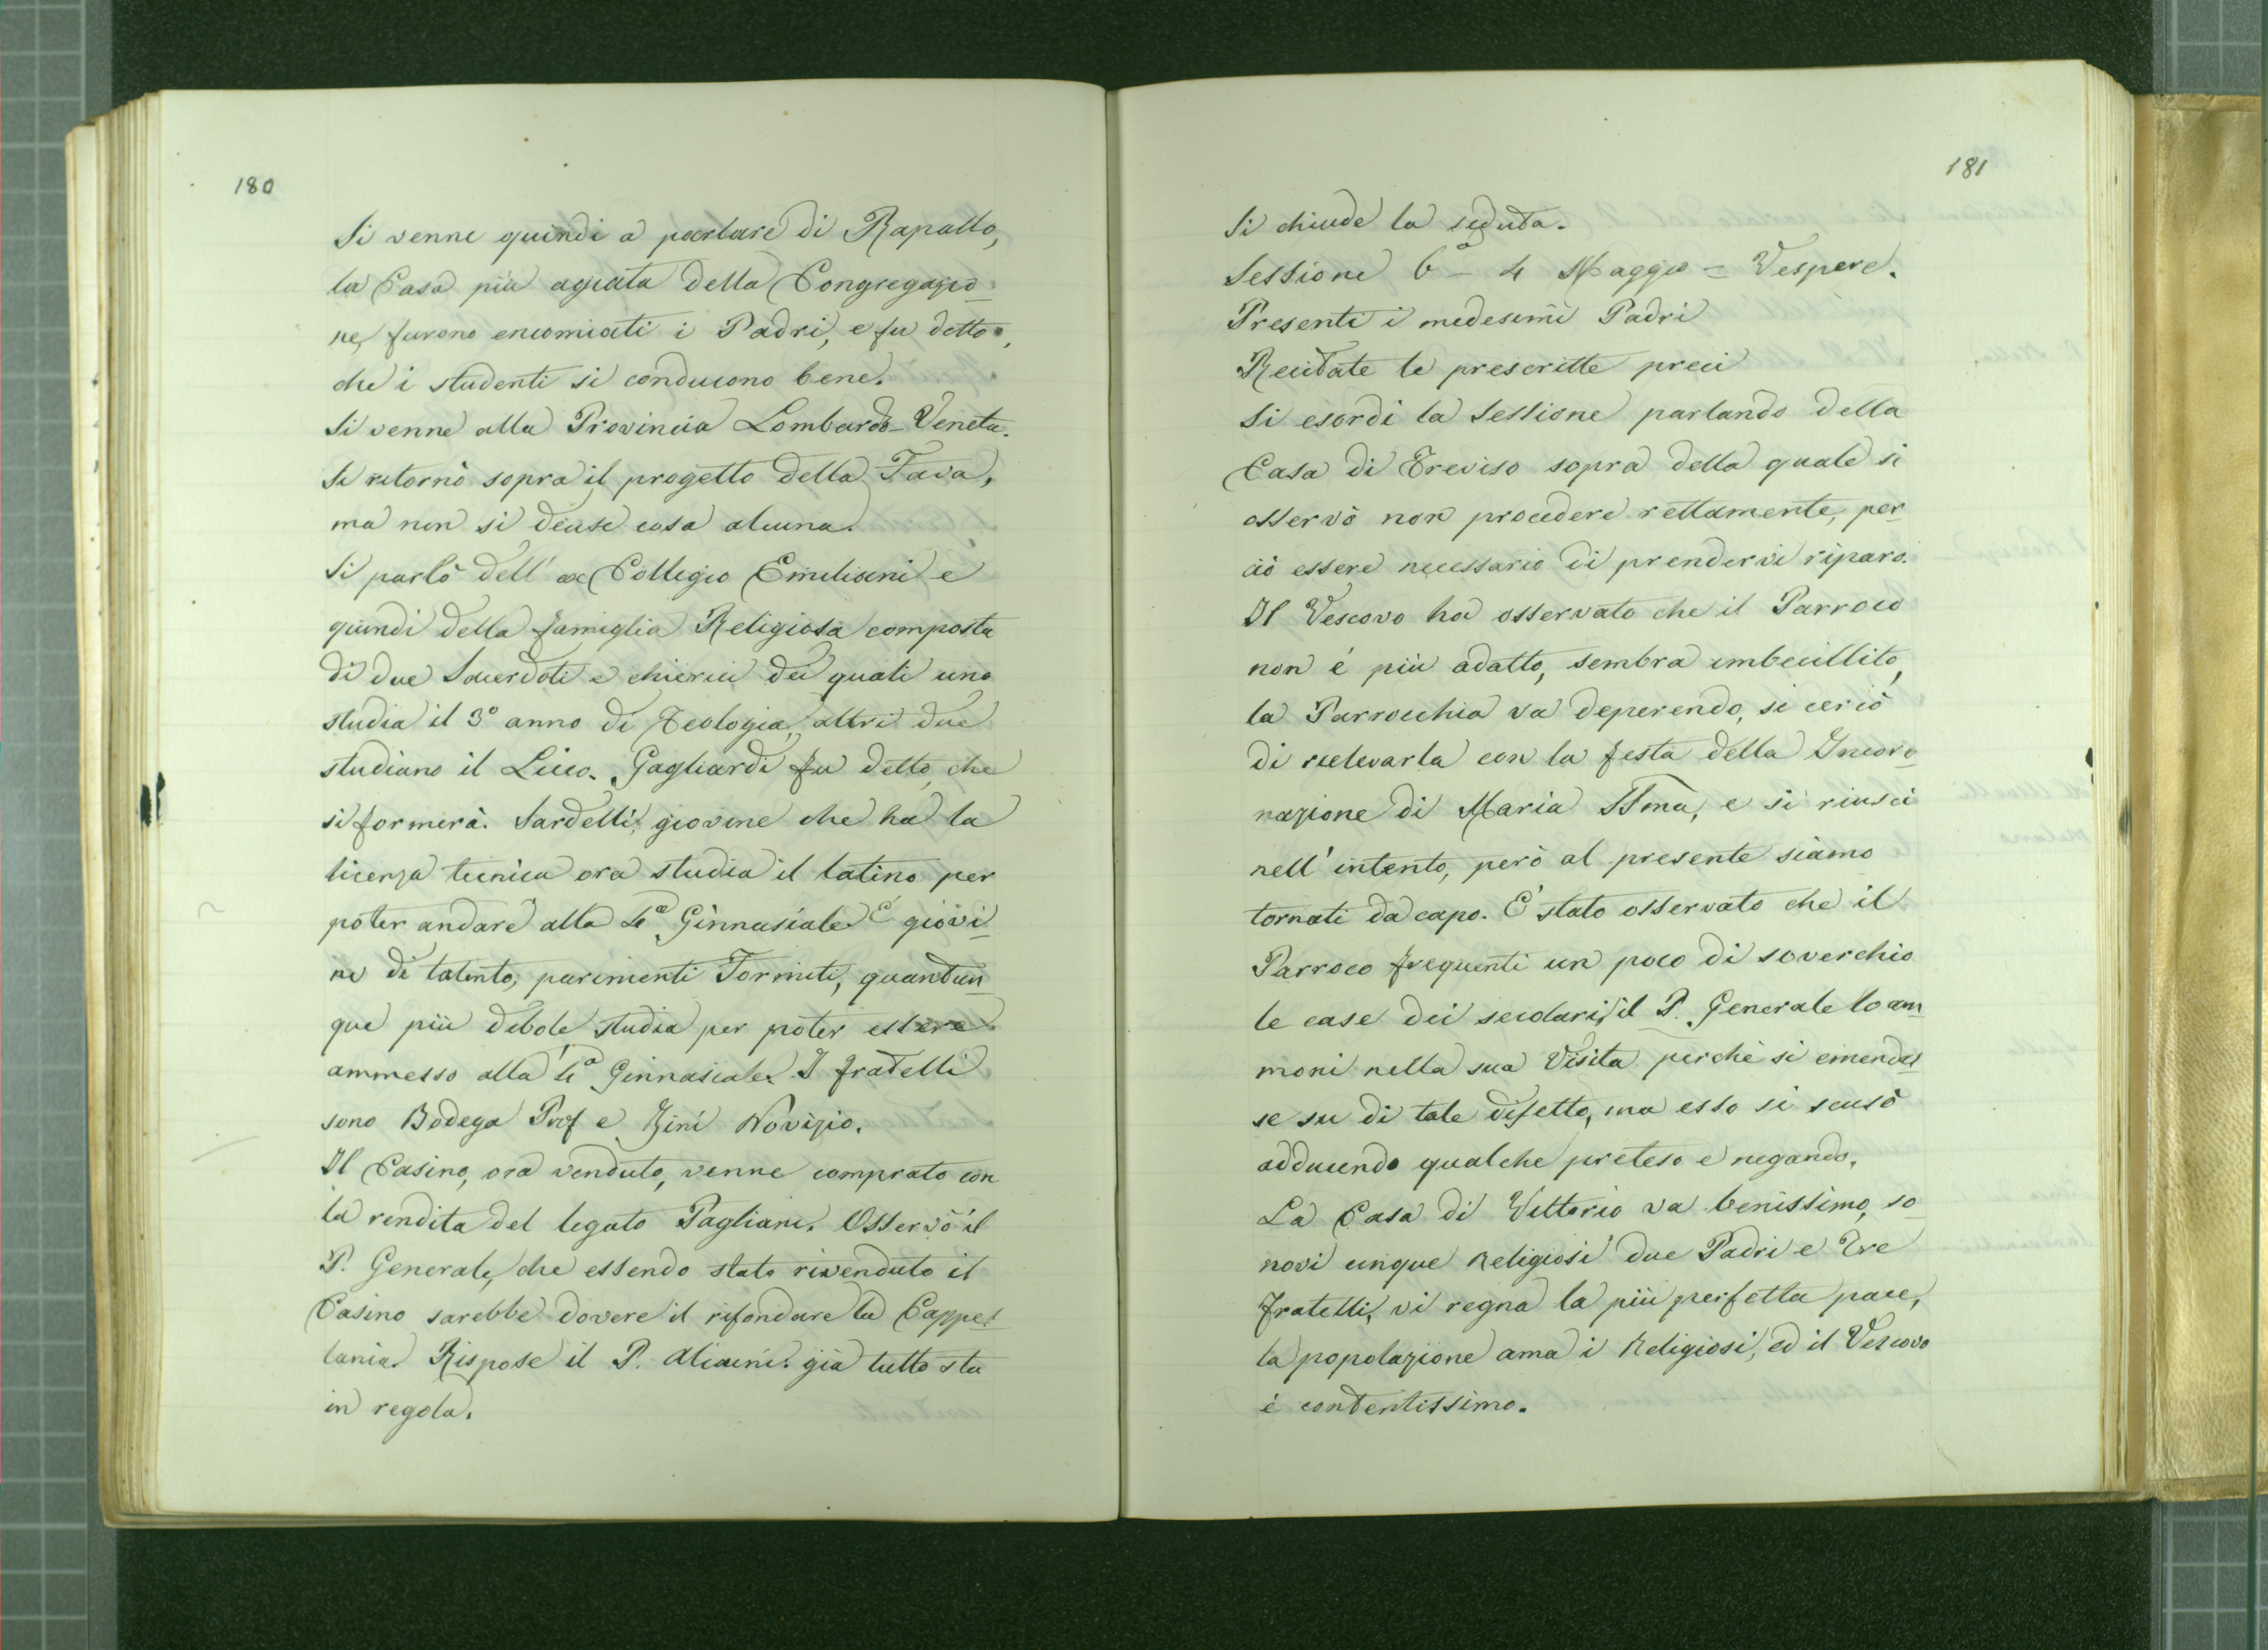 180
Si venne quindi a parlare di Rapallo,
la Casa più agiata della Congregazio-
ne, furono encomiati i Padri, e fu detto,
che i studenti si conducono bene.
Si venne alla Provincia Lombardo-Veneta.
Si ritornò sopra il progetto della Fava,
ma non si decise cosa alcuna.
Si parlò dell' ex Collegio Emiliani e
quindi della famiglia Religiosa composta
di due Sacerdoti e chierici dei quali uno
studia il 3º anno di Teologia, altri due
studiano il Liceo. Gagliardi fu detto, che
si formerà. Sardelli, giovine che ha la
licenza tecnica ora studia il latino per
poter andare alla 4ª Ginnasiale. É giovi-
ne di talento, parimenti Tormiti, quantun-
que più debole studia per poter essere
ammesso alla 4ª Ginnasiale. I fratelli
sono Bodega Prof e Zini Novizio.
Il Casino, ora venduto, venne comprato con
la rendita del legato Pagliani. Osservò il
P. Generale, che essendo stato rivenduto il
Casino sarebbe dovere il rifondare la Cappel-
lania. Rispose il P. Aliani. già tutto sta
in regola.
181
Si chiude la seduta.
Sessione 6ª - 4 Maggio = Vespere.
Presenti i medesimi Padri
Recitate le prescritte preci
Si esordì la Sessione parlando della
Casa di Treviso sopra della quale si
osservò non procedere rettamente, per-
ciò essere necessario di prendervi riparo.
Il Vescovo ha osservato che il Parroco
non é più adatto, sembra imbecillito,
la Parrocchia va deperendo, si cercò
di rielevarla con la festa della Incoro-
nazione di Maria SSma, e si riuscì
nell' intento, però al presente siamo
tornati da capo. É stato osservato che il
Parroco frequenti un poco di soverchio
le case dei secolari, il P. Generale lo am-
monì nella sua Visita perchè si emendas-
se su di tale difetto, ma esso si scusò
adducendo qualche preteso e negando.
La Casa di Vittorio va benissimo, so-
novi cinque Religiosi due Padri e tre
fratelli, vi regna la più perfetta pace,
la popolazione ama i Religiosi, ed il Vescovo
è contentissimo.